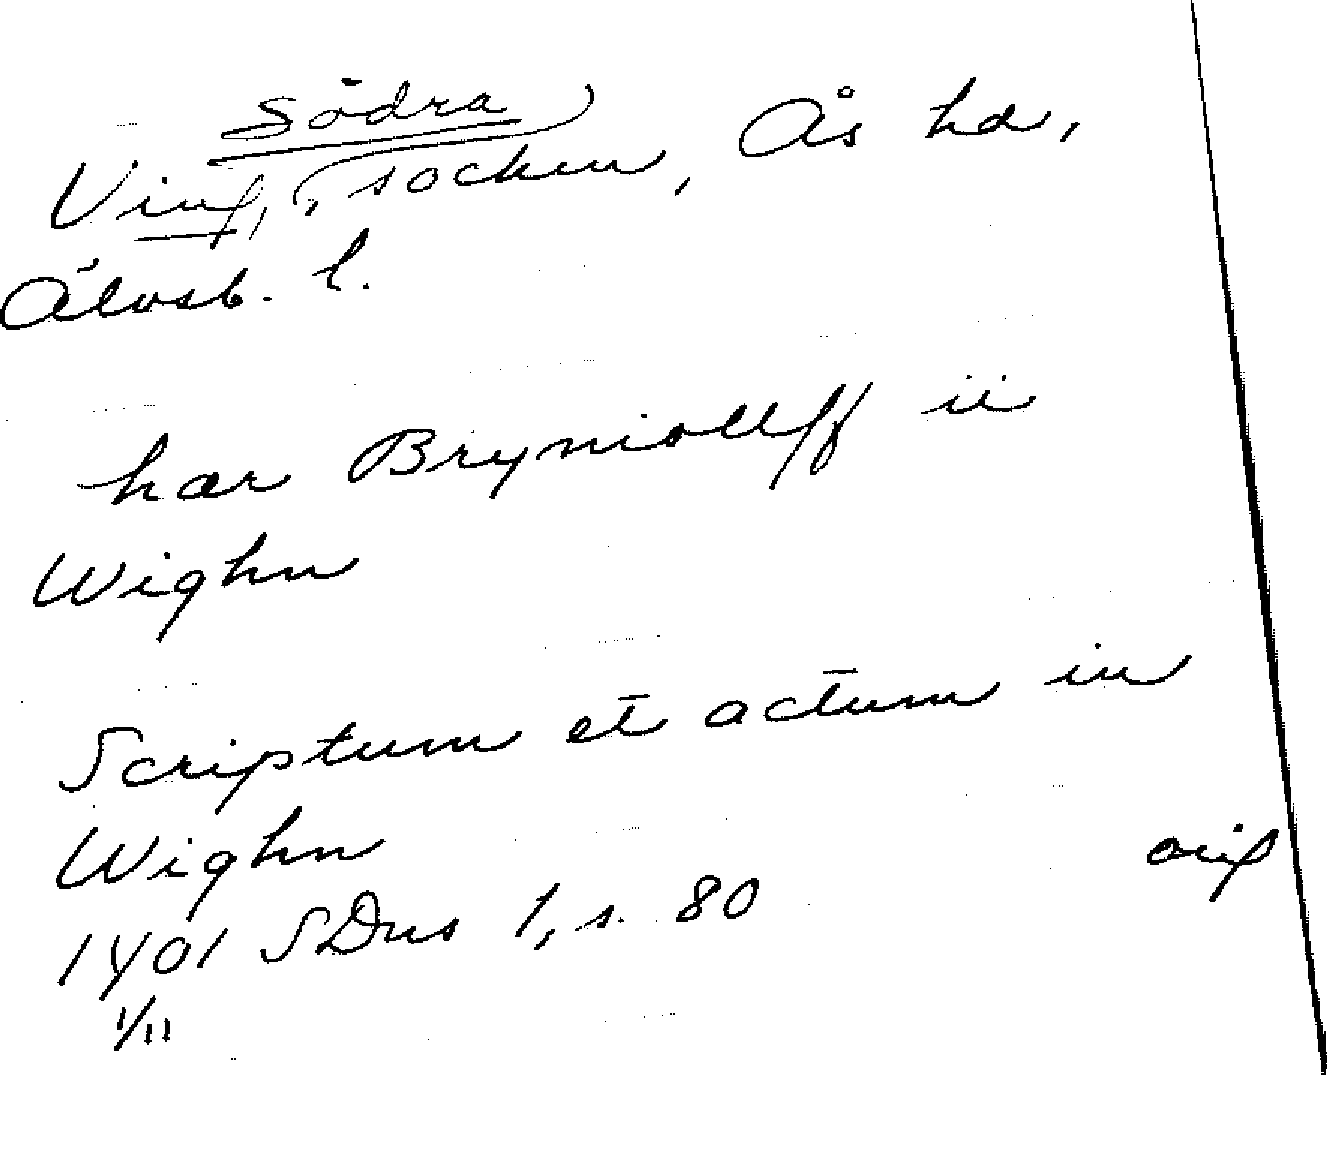 Södra
Ving, socken, Ås hd,
Älvsb. l.
har Bryniollff ii
Wighn
Scriptum et actum in
Wighn
orig
1401 SDns 1, s. 80
1/11